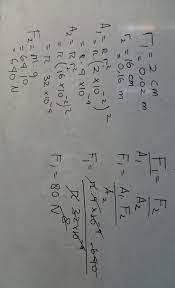 r₁ = 2 cm
= 0.02 m
r₂ = 16 cm
= 0.16 m
A₁ = π r²
= π (2 x 10⁻²)²
= π 4 x 10⁻⁴
A₂ = π r²
= π (16 x 10⁻²)²
= π 32 x 10⁻⁴
F₂ = m g
= 64.10
= 640 N
F₁/A₁ = F₂/A₂
F₁ = A₁ F₂/A₂
F₁ = π 4 x 10⁻⁴ . 640
π 32 x 10⁻⁴
8
F₁ = 80 N